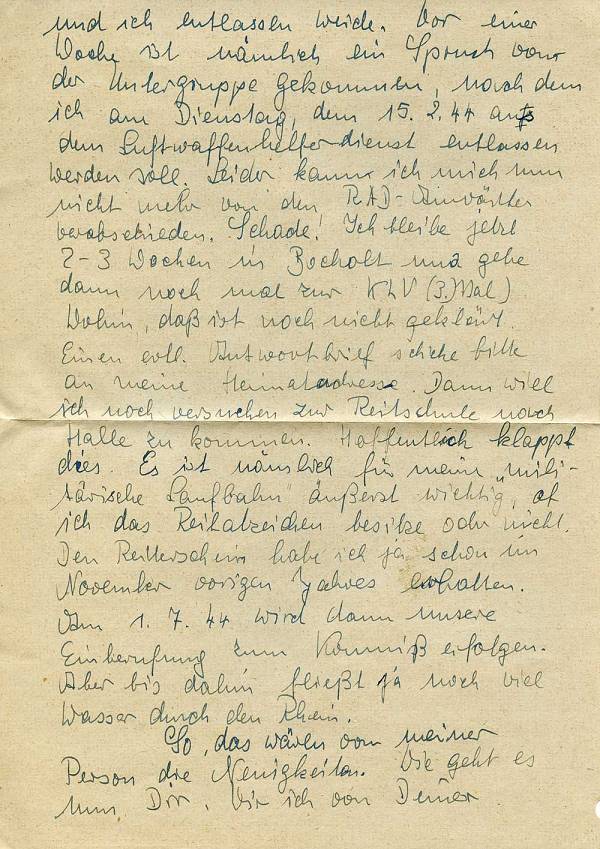 und ich entlassen werde. Vor einer
Woche ist nämlich ein Spruch von
der Untergruppe gekommen, nach dem
ich am Dienstag, dem 15. 2. 44 aus
dem Luftwaffenhelferdienst entlassen
werden soll. Leider kann ich mich nun
nicht mehr von den RAD-Anwärter
verabschieden. Schade! Ich bleibe jetzt
2-3 Wochen in Bocholt und gehe
dann noch mal zur KLV (3. Mal)
Wohin, daß ist noch nicht geklärt.
Einen evtl. Antwortbrief schicke bitte
an meine Heimatadresse. Dann will
ich noch versuchen zur Reitschule nach
Halle zu kommen. Hoffentlich klappt
dies. Es ist nämlich für meine „mili-
tärische Laufbahn" äußerst wichtig, ob
ich das Reitabzeichen besitze oder nicht.
Den Reiterschein habe ich ja schon im
November vorigen Jahres erhalten.
Am 1. 7. 44 wird dann unsere
Einberufung zum Kommiß erfolgen.
Aber bis dahin fließt ja noch viel
Wasser durch den Rhein.
So, das wären von meiner
Person die Neuigkeiten. Wie geht es
nun Dir. Wir ich von Deiner